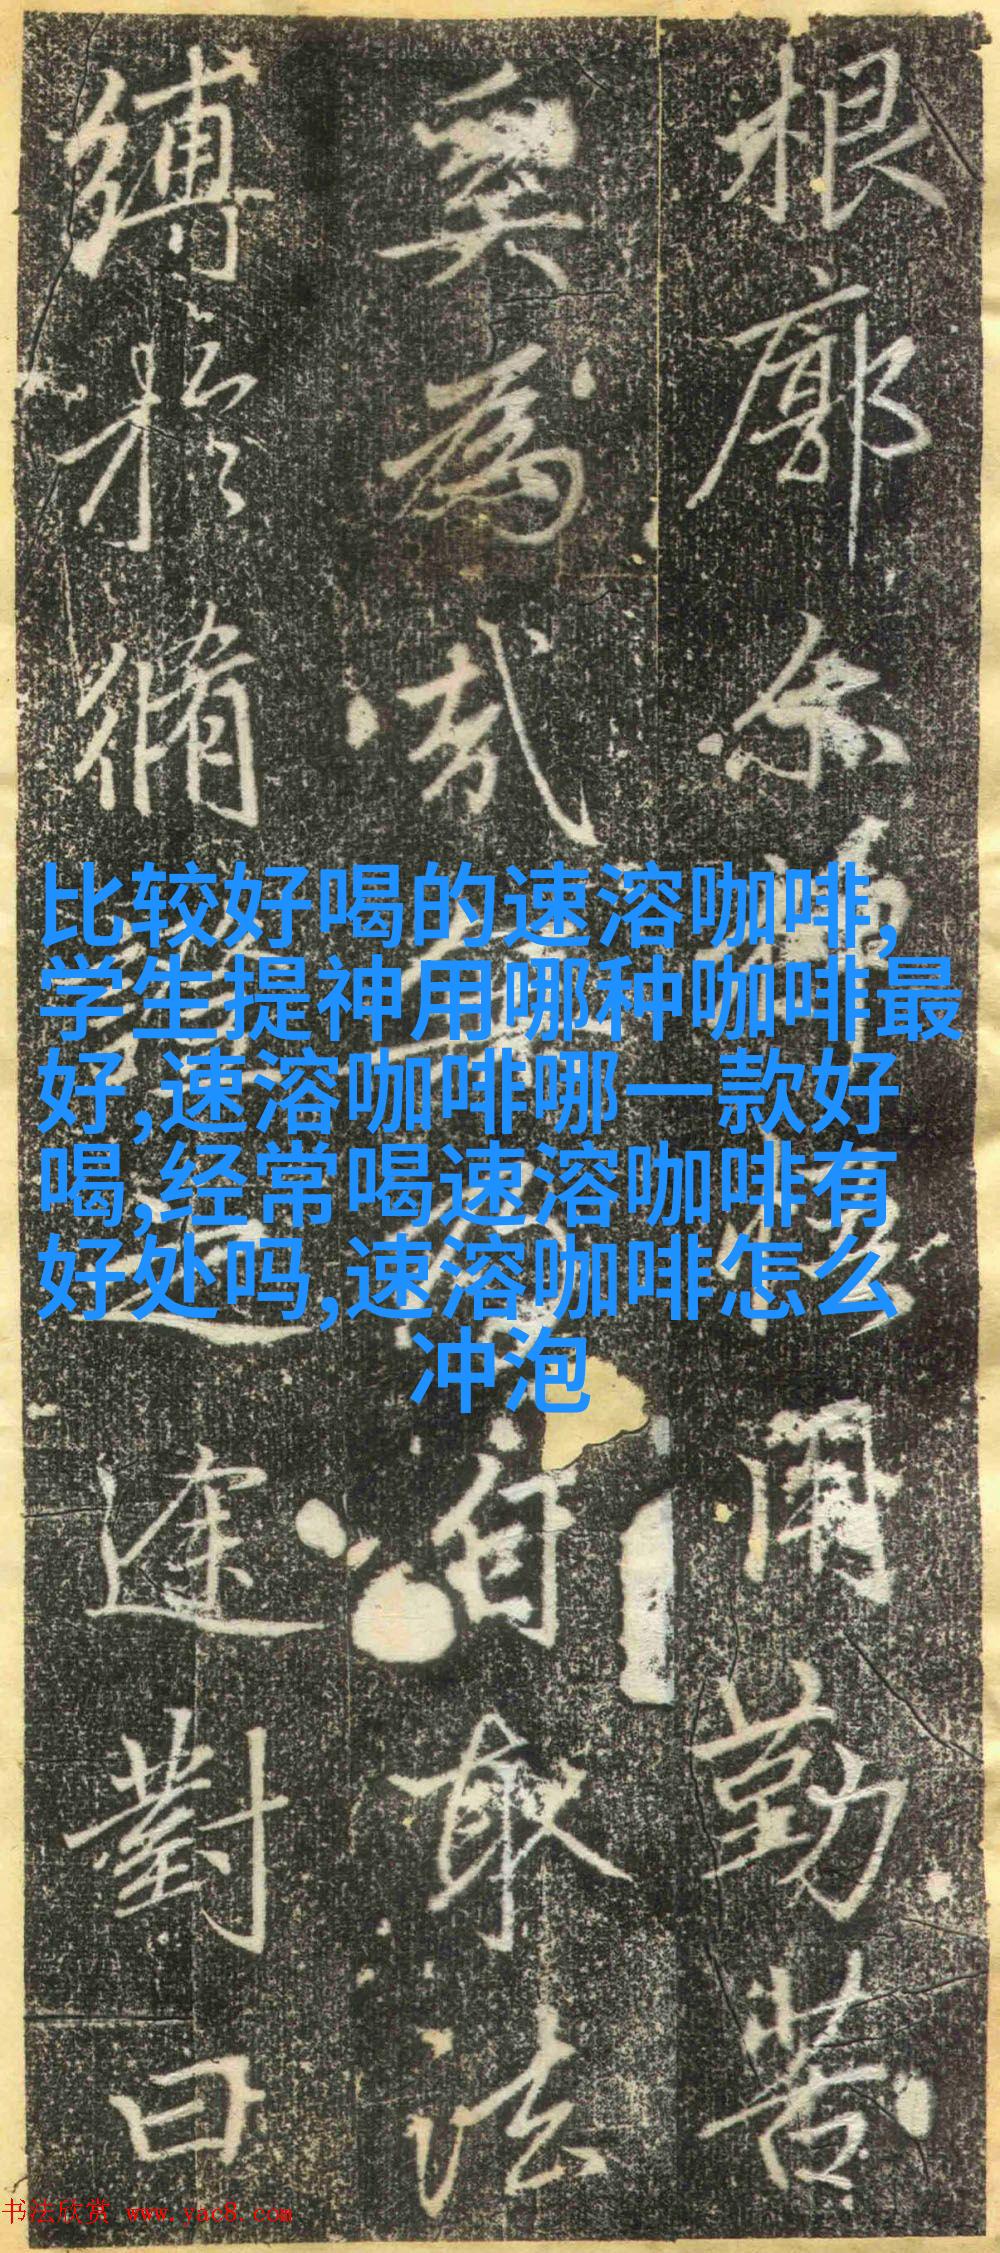 根廓尒用勤苦
奚為哉自取法
縛於脩途對曰
比较好喝的速溶咖啡,
学生提神用哪种咖啡最
好,速溶咖啡哪一款好
喝,经常喝速溶咖啡有
好处吗,速溶咖啡怎么
冲泡
书法欣赏 www.yac8.com